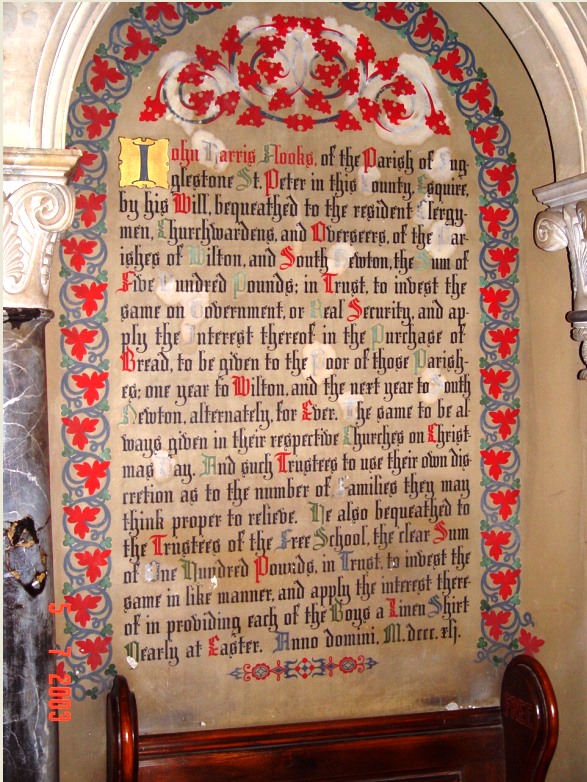 John Harris Flooks, of the Parish of Ug-
glestone St. Peter in this County, Esquire,
by his Will, bequeathed to the resident Clergy-
men, Churchwardens, and Overseers, of the Par-
ishes of Wilton, and South Newton, the Sum of
Five Hundred Pounds; in Trust, to invest the
same on Government, or Real Security, and ap-
ply the Interest thereof in the Purchase of
Bread, to be given to the Poor of those Parish-
es; one year to Wilton, and the next year to South
Newton, alternately, for Ever. The same to be al-
ways given in their respective Churches on Christ-
mas Day. And such Trustees to use their own dis-
cretion as to the number of Families they may
think proper to relieve. He also bequeathed to
the Trustees of the Free School, the clear Sum
of One Hundred Pounds, in Trust, to invest the
same in like manner, and apply the interest there-
of in providing each of the Boys a Linen Shirt
Yearly at Easter. Anno domini. M.dccc.xlj.
5 7 2003